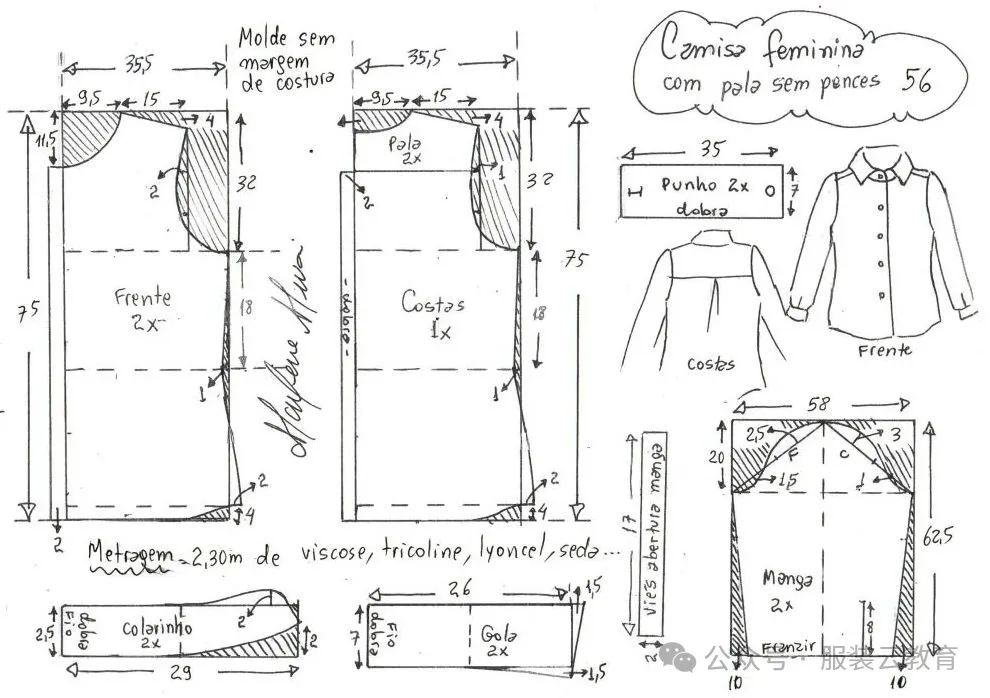 Molde sem
margem
de costura
Camisa feminina
com pala sem pences 56
35,5
9,5
15
4
11,5
2
32
75
18
Frente
2x
1
2
4
2
35,5
9,5
15
4
Pala
2x
1
2
32
75
18
Costas
1x
-dobra-
1
2
4
Marlene Mukai
35
Punho 2x
dobra
7
Costas
Frente
Metragem - 2,30m de viscose, tricoline, lyoncel, seda...
2,5
Fio
dobra
Colarinho
2x
2
2
29
26
1,5
7
Fio
dobra
Gola
2x
1,5
17
viés abertura manga
2
58
2,5
3
20
F
C
1,5
1
62,5
Manga
2x
8
Franzir
10
10
公众号·服装云教育